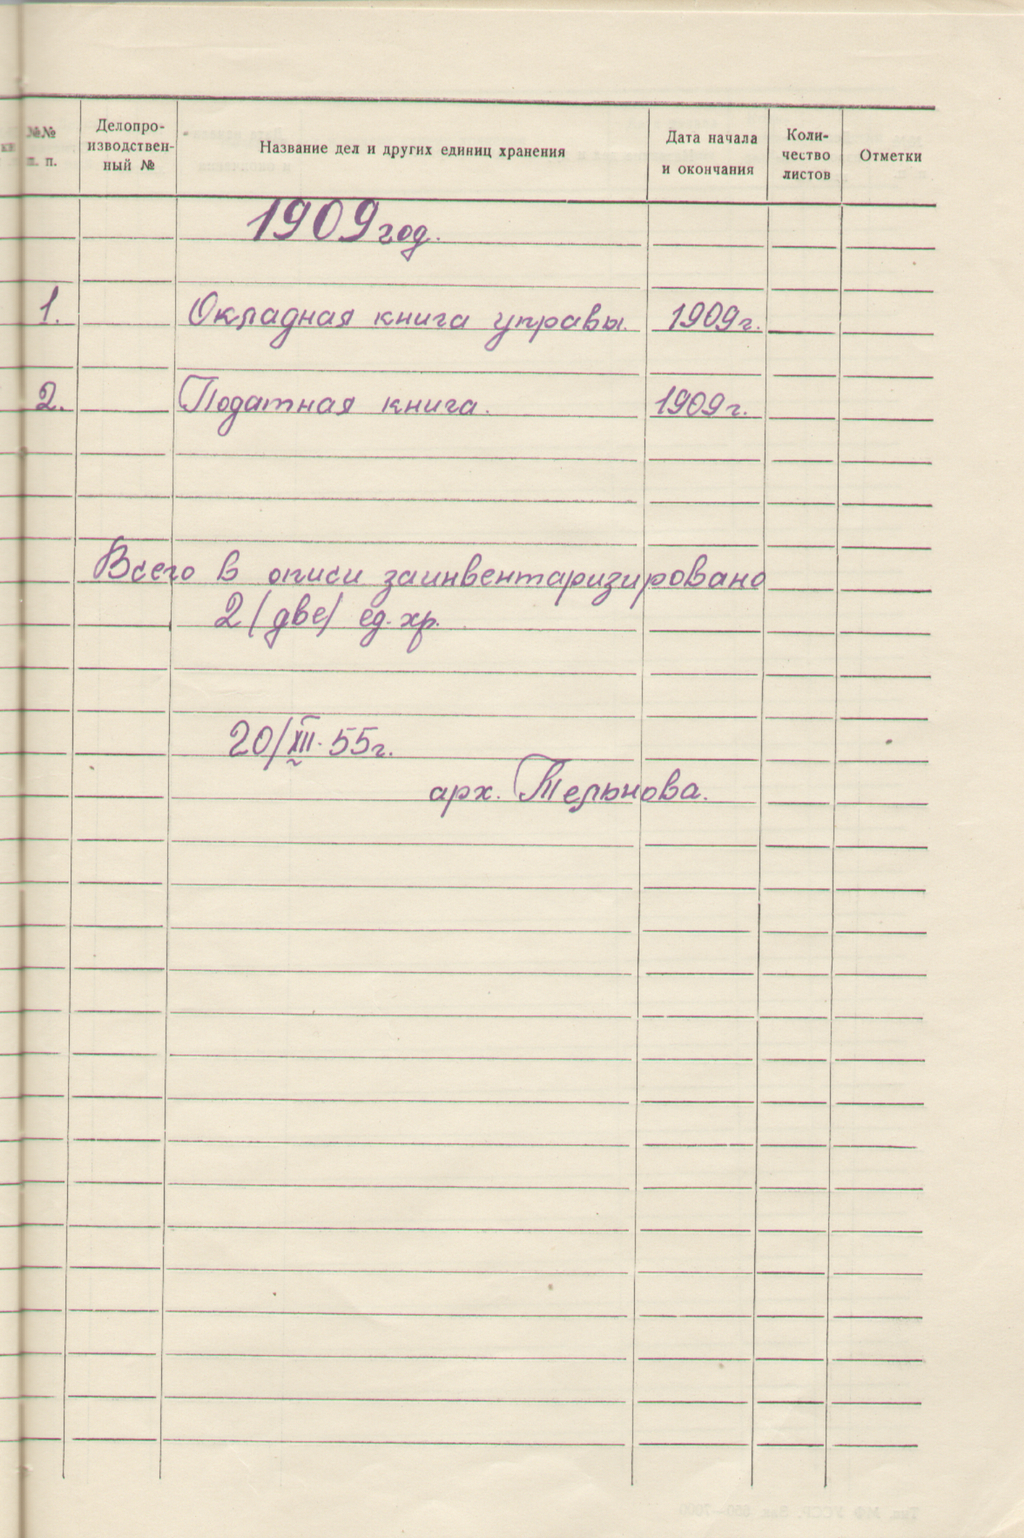 №№ п. п.
Делопроизводственный №
Название дел и других единиц хранения
Дата начала и окончания
Количество листов
Отметки
1909 год.
1. Окладная книга управы. 1909г.
2. Податная книга. 1909г.
Всего в описи заинвентаризировано
2 (две) ед. хр.
20/XII-55г.
арх. Тельнова.